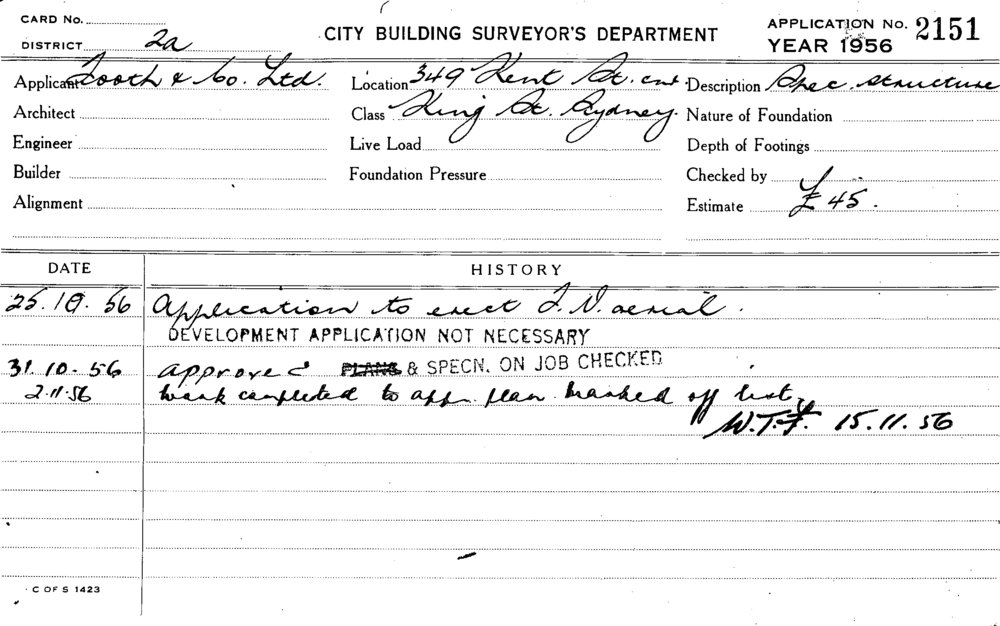 CARD No.
DISTRICT 2a
CITY BUILDING SURVEYOR'S DEPARTMENT
APPLICATION No. 2151
YEAR 1956
Applicant Tooth & Co. Ltd.
Location 349 Kent St. cnr
Description Spec. structure
Architect
Class King St. Sydney.
Nature of Foundation
Engineer
Live Load
Depth of Footings
Builder
Foundation Pressure
Checked by
Alignment
Estimate £45.
DATE HISTORY
25.10.56 Application to erect T.V. aerial.
DEVELOPMENT APPLICATION NOT NECESSARY
31.10.56 approved PLANS & SPECN. ON JOB CHECKED
2.11.56 Work completed to app. plan marked off list
W.T.F. 15.11.56
C OF S 1423